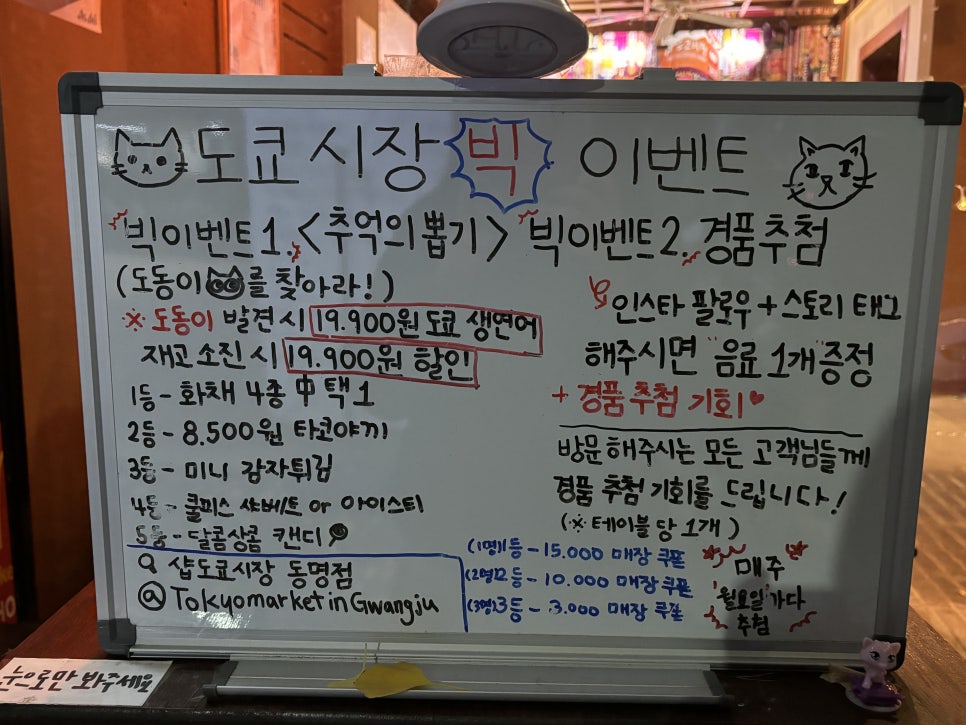 도쿄 시장 빅 이벤트
빅이벤트1. <추억의 뽑기>
(도동이를 찾아라!)
※ 도동이 발견 시 19.900원 도쿄 생연어
재고 소진 시 19.900원 할인
1등 - 화채 4종 中 택 1
2등 - 8.500원 타코야끼
3등 - 미니 감자튀김
4등 - 쿨피스 샤베트 or 아이스티
5등 - 달콤상콤 캔디
샵도쿄시장 동명점
@ TokyomarketinGwangju
빅이벤트2. 경품추첨
인스타 팔로우 + 스토리 태그
해주시면 "음료 1개" 증정
+ 경품 추첨 기회♥
방문 해주시는 모든 고객님들께
경품 추첨 기회를 드립니다!
(※ 테이블 당 1개)
(1명)1등 - 15.000 매장 쿠폰
(2명)2등 - 10.000 매장 쿠폰
(3명)3등 - 3.000 매장 쿠폰
매주
월요일 마다
추첨
눈으로만 봐주세요